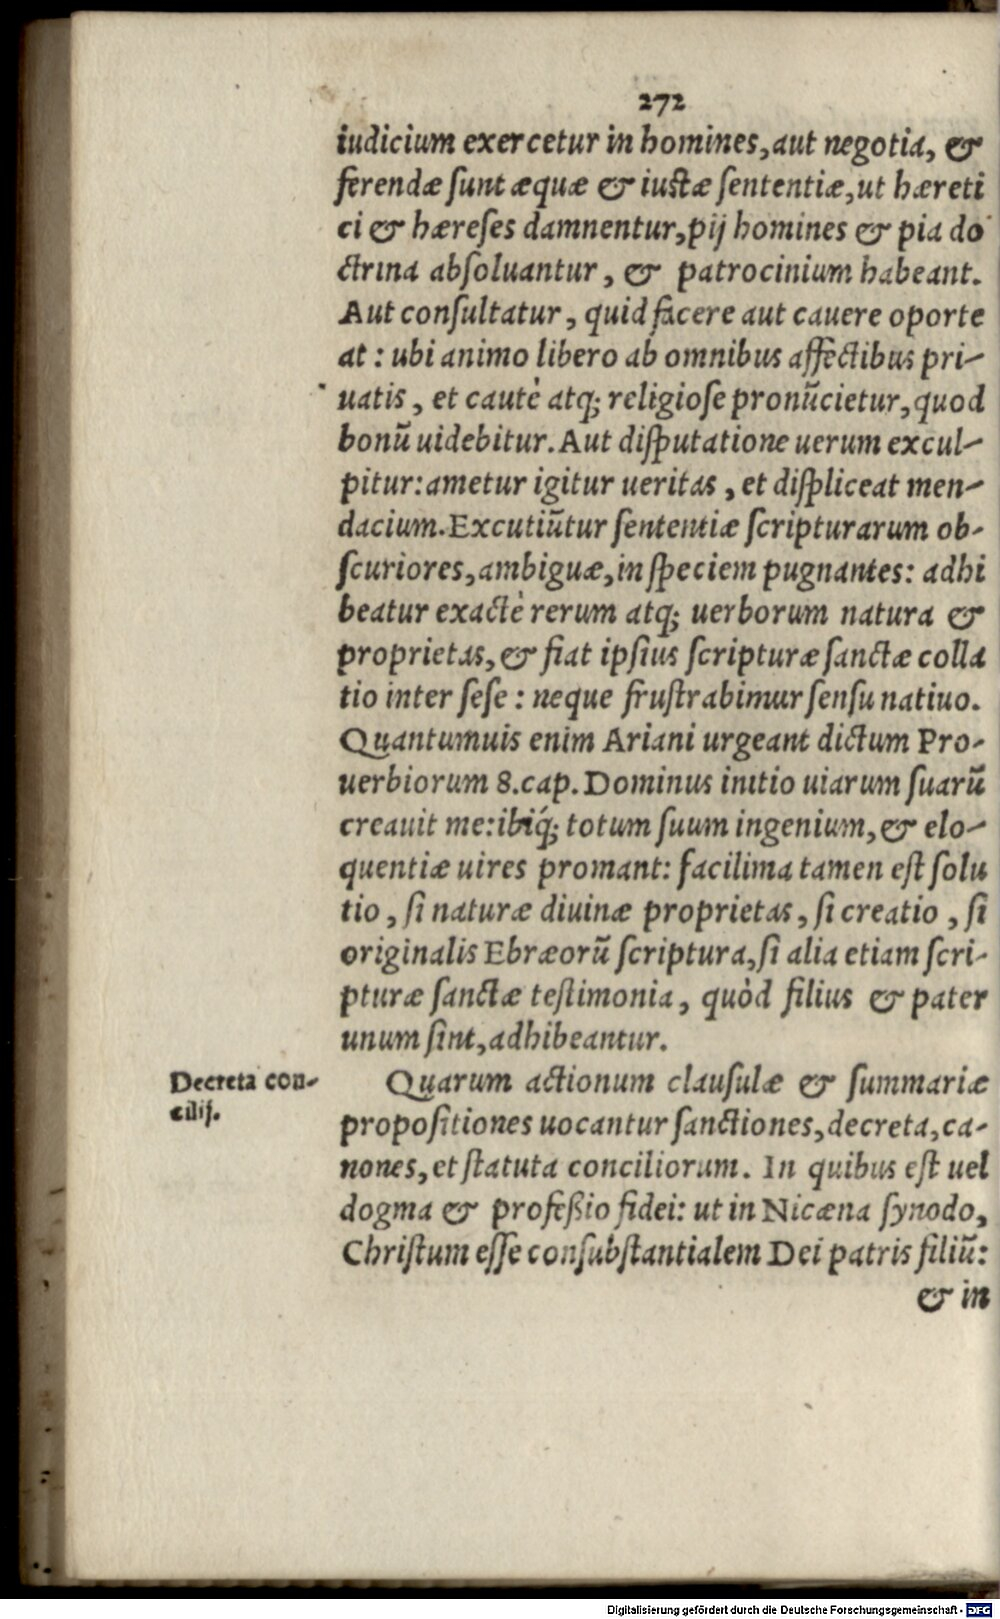 272
iudicium exercetur in homines, aut negotia, &
ferendæ sunt æquæ & iustæ sententiæ, ut hæreti
ci & hæreses damnentur, pij homines & pia do
ctrina absoluantur, & patrocinium habeant.
Aut consultatur, quid facere aut cauere oporte
at: ubi animo libero ab omnibus affectibus pri-
uatis, et cautè atq; religiose pronũcietur, quod
bonũ uidebitur. Aut disputatione uerum excul-
pitur: ametur igitur ueritas, et displiceat men-
dacium. Excutiũtur sententiæ scripturarum ob-
scuriores, ambiguæ, in speciem pugnantes: adhi
beatur exactè rerum atq; uerborum natura &
proprietas, & fiat ipsius scripturæ sanctæ colla
tio inter sese: neque frustrabimur sensu natiuo.
Quantumuis enim Ariani urgeant dictum Pro-
uerbiorum 8. cap. Dominus initio uiarum suarũ
creauit me: ibiq́; totum suum ingenium, & elo-
quentiæ uires promant: facilima tamen est solu
tio, si naturæ diuinæ proprietas, si creatio, si
originalis Ebræorũ scriptura, si alia etiam scri-
pturæ sanctæ testimonia, quòd filius & pater
unum sint, adhibeantur.
Decreta con-
cilij.
Quarum actionum clausulæ & summariæ
propositiones uocantur sanctiones, decreta, ca-
nones, et statuta conciliorum. In quibus est uel
dogma & profeßio fidei: ut in Nicæna synodo,
Christum esse consubstantialem Dei patris filiũ:
& in
Digitalisierung gefördert durch die Deutsche Forschungsgemeinschaft - DFG